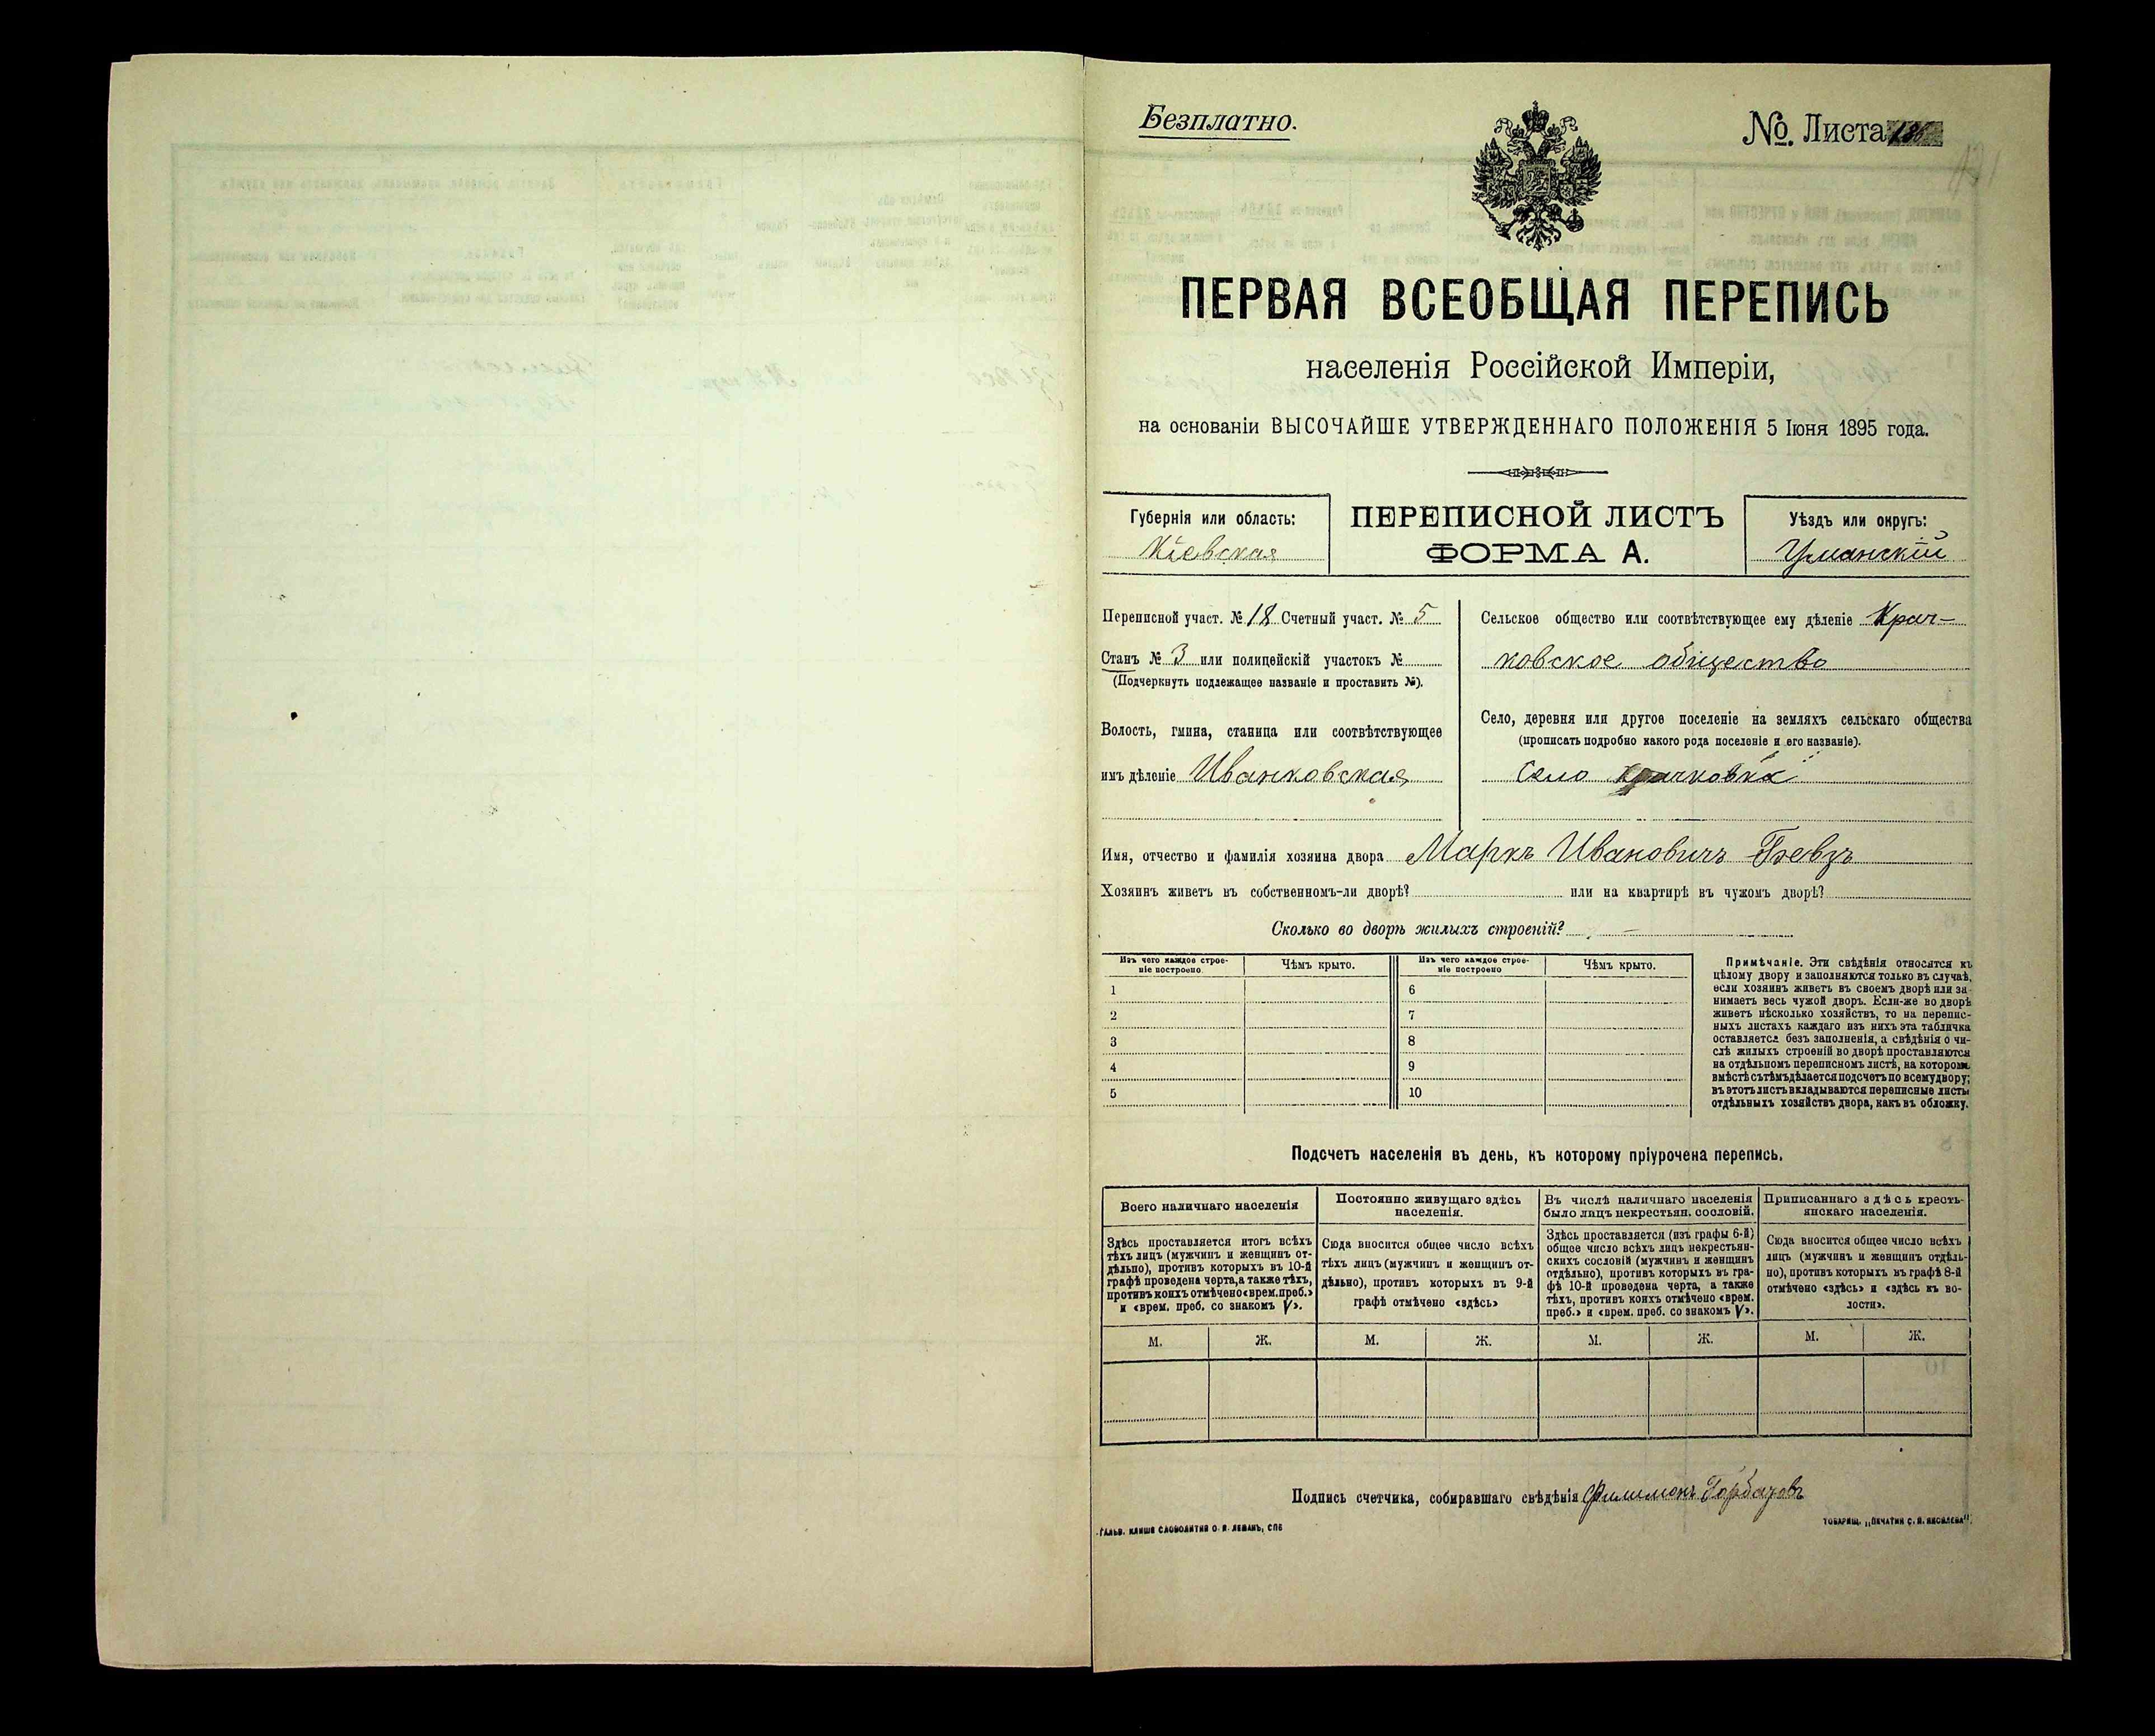 Безплатно.
№. Листа 136
ПЕРВАЯ ВСЕОБЩАЯ ПЕРЕПИСЬ
населенія Россійской Имперіи,
на основаніи ВЫСОЧАЙШЕ УТВЕРЖДЕННАГО ПОЛОЖЕНІЯ 5 Іюня 1895 года.
Губернія или область:
Кіевская
ПЕРЕПИСНОЙ ЛИСТЪ
ФОРМА А.
Уѣздъ или округъ:
Уманскій
Переписной участ. № 18 Счетный участ. № 5
Станъ № 3 или полицейскій участокъ №
(Подчеркнуть подлежащее названіе и проставить №).
Волость, гмина, станица или соотвѣтствующее
имъ дѣленіе Иванковская
Сельское общество или соотвѣтствующее ему дѣленіе Крач-
ковское общество
Село, деревня или другое поселеніе на земляхъ сельскаго общества
(прописать подробно какого рода поселеніе и его названіе).
Село Крачковка
Имя, отчество и фамилія хозяина двора Маркъ Ивановичъ Бевзъ
Хозяинъ живетъ въ собственномъ-ли дворѣ? или на квартирѣ въ чужомъ дворѣ?
Сколько во дворѣ жилыхъ строеній? —
Изъ чего каждое строе-
ніе построено
Чѣмъ крыто.
Изъ чего каждое строе-
ніе построено
Чѣмъ крыто.
1
2
3
4
5
6
7
8
9
10
Примѣчаніе. Эти свѣдѣнія относятся къ
цѣлому двору и заполняются только въ случаѣ,
если хозяинъ живетъ въ своемъ дворѣ или за-
нимаетъ весь чужой дворъ. Если-же во дворѣ
живетъ нѣсколько хозяйствъ, то на перепис-
ныхъ листахъ каждаго изъ нихъ эта табличка
оставляется безъ заполненія, а свѣдѣнія о чи-
слѣ жилыхъ строеній во дворѣ проставляются
на отдѣльномъ переписномъ листѣ, на которомъ
вмѣстѣ съ тѣмъ дѣлается подсчетъ по всему двору;
въ этотъ листъ вкладываются переписные листы
отдѣльныхъ хозяйствъ двора, какъ въ обложку.
Подсчетъ населенія въ день, къ которому пріурочена перепись.
Всего наличнаго населенія
Здѣсь проставляется итогъ всѣхъ
тѣхъ лицъ (мужчинъ и женщинъ от-
дѣльно), противъ которыхъ въ 10-й
графѣ проведена черта, а также тѣхъ,
противъ коихъ отмѣчено «врем. преб.»
и «врем. преб. со знакомъ V».
Постоянно живущаго здѣсь
населенія.
Сюда вносится общее число всѣхъ
тѣхъ лицъ (мужчинъ и женщинъ от-
дѣльно), противъ которыхъ въ 9-й
графѣ отмѣчено «здѣсь»
Въ числѣ наличнаго населенія
было лицъ некрестьян. сословій.
Здѣсь проставляется (изъ графы 6-й)
общее число всѣхъ лицъ некрестьян-
скихъ сословій (мужчинъ и женщинъ
отдѣльно), противъ которыхъ въ гра-
фѣ 10-й проведена черта, а также
тѣхъ, противъ коихъ отмѣчено «врем.
преб.» и «врем. преб. со знакомъ V».
Приписаннаго здѣсь кресть-
янскаго населенія.
Сюда вносится общее число всѣхъ
лицъ (мужчинъ и женщинъ отдѣль-
но), противъ которыхъ въ графѣ 8-й
отмѣчено «здѣсь» и «здѣсь къ во-
лости».
М. Ж. М. Ж. М. Ж. М. Ж.
Подпись счетчика, собиравшаго свѣдѣнія Филимонъ Горбачовъ
ГАЛЬВ. КЛИШЕ СЛОВОЛИТНИ О. И. ЛЕМАНЪ, СПБ
ТОВАРИЩ. „ПЕЧАТНИ С. П. ЯКОВЛЕВА".